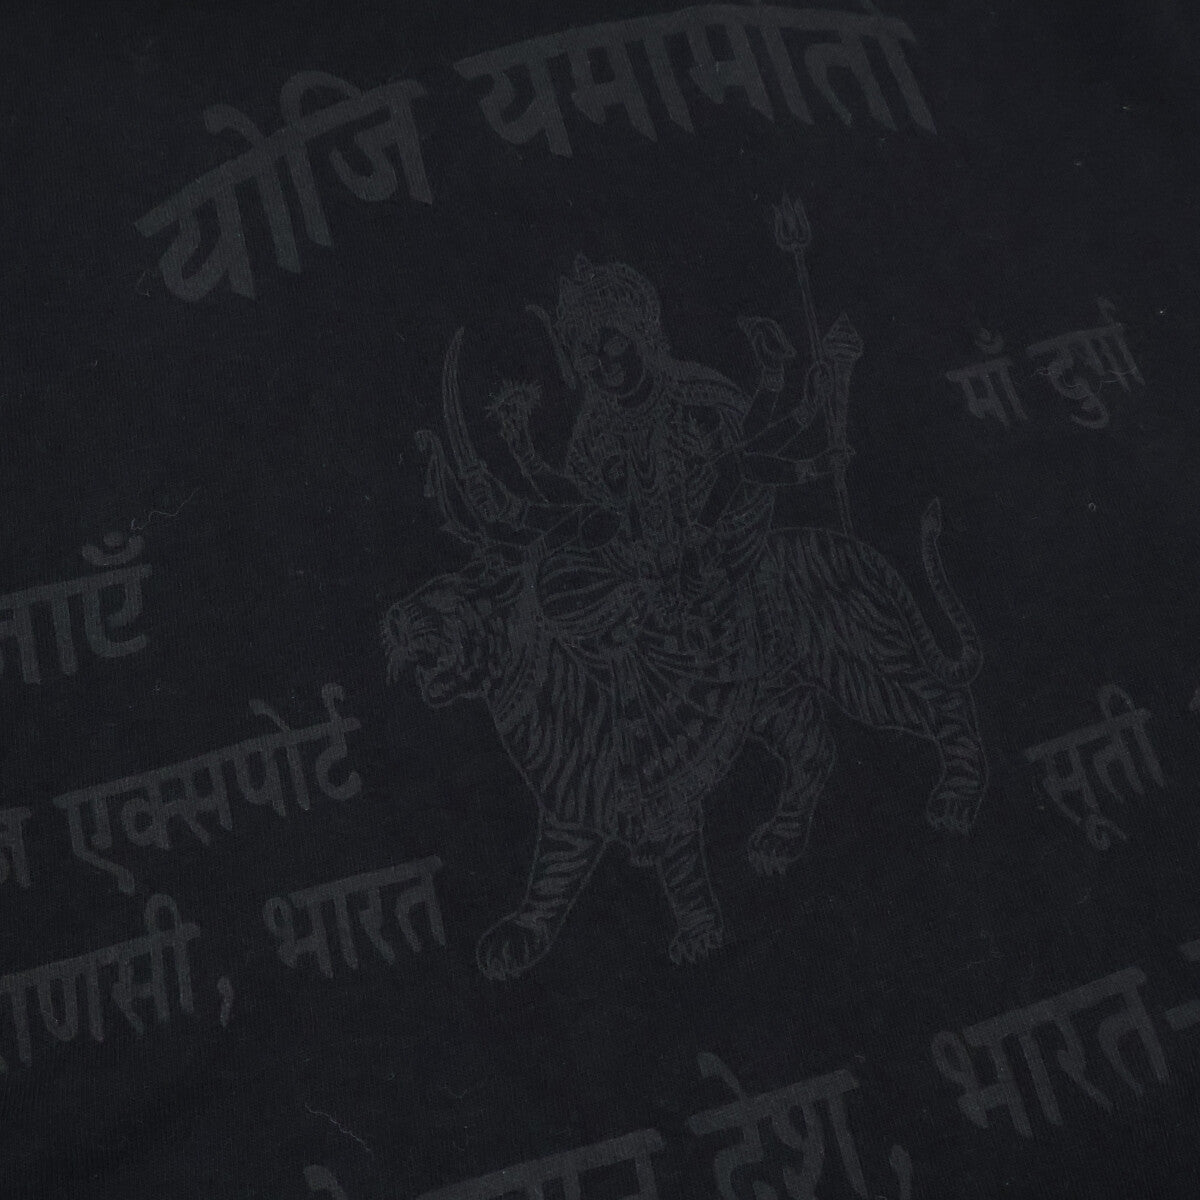 योजि यमामोतो
माँ दुर्गा
सूती
एक्सपोर्ट
भारत
देश, भारत-